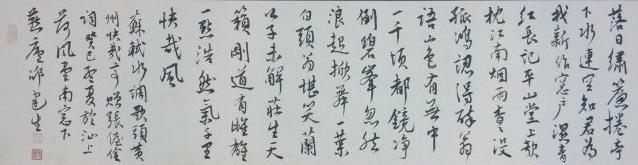 落日繡簾捲亭
下水連空知君為
我新作窓戶濕青
紅長記平山堂上欹
枕江南烟雨杳々沒
孤鴻認得醉翁
語山色有無中
一千頃都鏡净
倒碧峯忽然
浪起掀舞一葉
白頭翁堪笑蘭
公子未解莊生天
籟剛道有雌雄
一點浩然氣千里
快哉風
蘇軾水調歌頭黃
州快哉亭贈張偓佺
詞癸巳孟夏於汕上
荷風南窓下
廬生